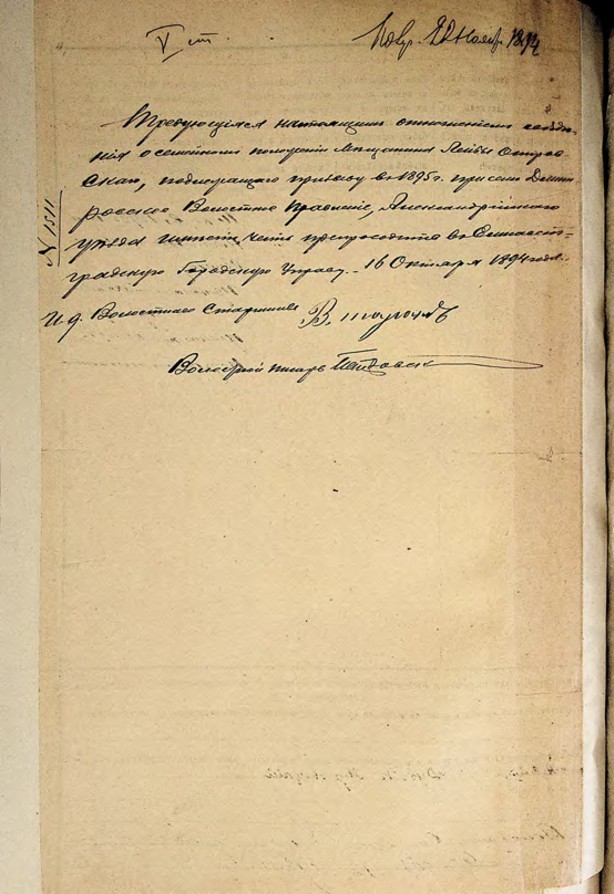 V ст.
22 Нояб. 1894
№ 1511
Требующіяся настоящимъ отношеніемъ свѣдѣ-
нія о семейномъ положеніи Мѣщанина Лейбы Остров-
скаго, подлежащаго призыву въ 1895 г. при семъ Дмит-
ровское Волостное Правленіе, Александрійскаго
уѣзда имѣетъ честь препроводить въ Елисавет-
градскую Городскую Управу. 16 Октября 1894 года.
И. д. Волостнаго Старшины
Волостной писарь